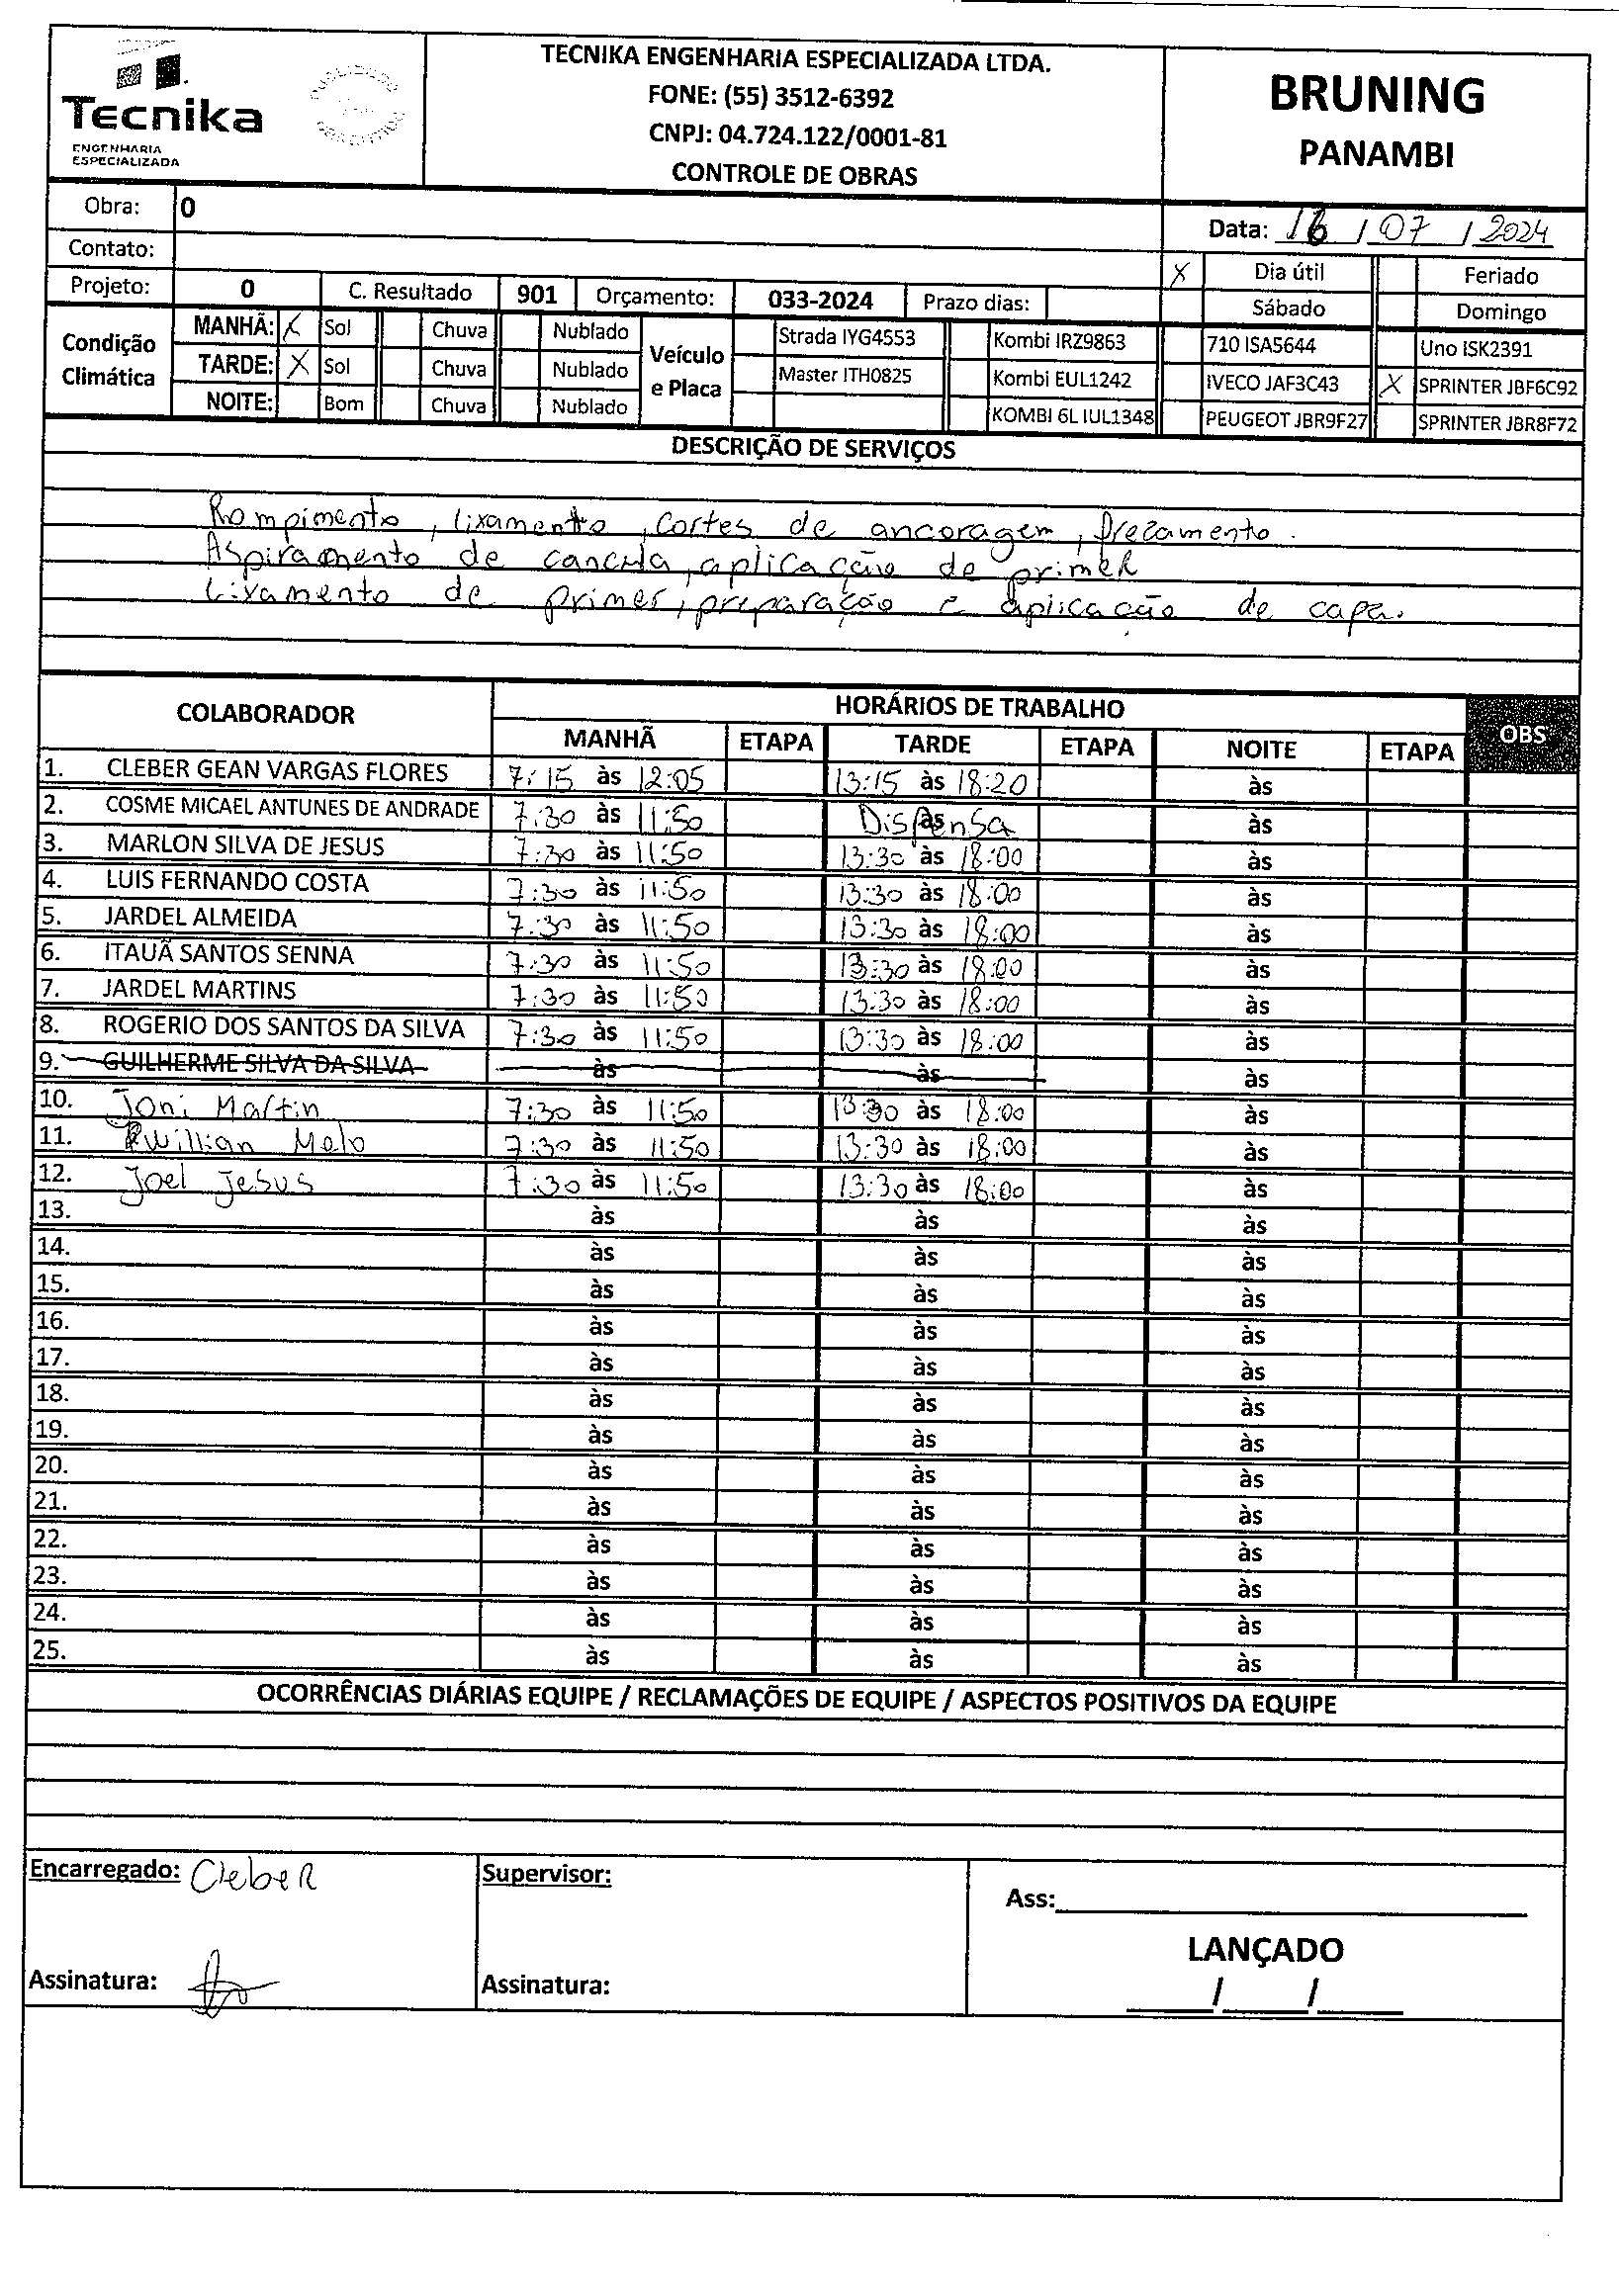 Tecnika
ENGENHARIA
ESPECIALIZADA
TECNIKA ENGENHARIA ESPECIALIZADA LTDA.
FONE: (55) 3512-6392
CNPJ: 04.724.122/0001-81
CONTROLE DE OBRAS
BRUNING
PANAMBI
Obra: 0
Data: 16 / 07 / 2024
Contato:
X Dia útil Feriado
Projeto: 0 C. Resultado 901 Orçamento: 033-2024 Prazo dias: Sábado Domingo
Condição Climática
MANHÃ: X Sol Chuva Nublado
TARDE: X Sol Chuva Nublado
NOITE: Bom Chuva Nublado
Veículo e Placa
Strada IYG4553 Kombi IRZ9863 710 ISA5644 Uno ISK2391
Master ITH0825 Kombi EUL1242 IVECO JAF3C43 X SPRINTER JBF6C92
KOMBI 6L IUL1348 PEUGEOT JBR9F27 SPRINTER JBR8F72
DESCRIÇÃO DE SERVIÇOS
Rompimento, lixamento, cortes de ancoragem, frezamento.
Aspiramento de cancha, aplicação de primer
Lixamento de primer, preparação e aplicação de capa.
COLABORADOR HORÁRIOS DE TRABALHO OBS
MANHÃ ETAPA TARDE ETAPA NOITE ETAPA
1. CLEBER GEAN VARGAS FLORES 7:15 às 12:05 13:15 às 18:20 às
2. COSME MICAEL ANTUNES DE ANDRADE 7:30 às 11:50 Dispensa às às
3. MARLON SILVA DE JESUS 7:30 às 11:50 13:30 às 18:00 às
4. LUIS FERNANDO COSTA 7:30 às 11:50 13:30 às 18:00 às
5. JARDEL ALMEIDA 7:30 às 11:50 13:30 às 18:00 às
6. ITAUÃ SANTOS SENNA 7:30 às 11:50 13:30 às 18:00 às
7. JARDEL MARTINS 7:30 às 11:50 13:30 às 18:00 às
8. ROGERIO DOS SANTOS DA SILVA 7:30 às 11:50 13:30 às 18:00 às
9. GUILHERME SILVA DA SILVA às às às
10. Joni Martin 7:30 às 11:50 13:30 às 18:00 às
11. Willian Melo 7:30 às 11:50 13:30 às 18:00 às
12. Joel Jesus 7:30 às 11:50 13:30 às 18:00 às
13. às às às
14. às às às
15. às às às
16. às às às
17. às às às
18. às às às
19. às às às
20. às às às
21. às às às
22. às às às
23. às às às
24. às às às
25. às às às
OCORRÊNCIAS DIÁRIAS EQUIPE / RECLAMAÇÕES DE EQUIPE / ASPECTOS POSITIVOS DA EQUIPE
Encarregado: Cleber
Supervisor:
Ass:
LANÇADO
Assinatura:
Assinatura:
/ /